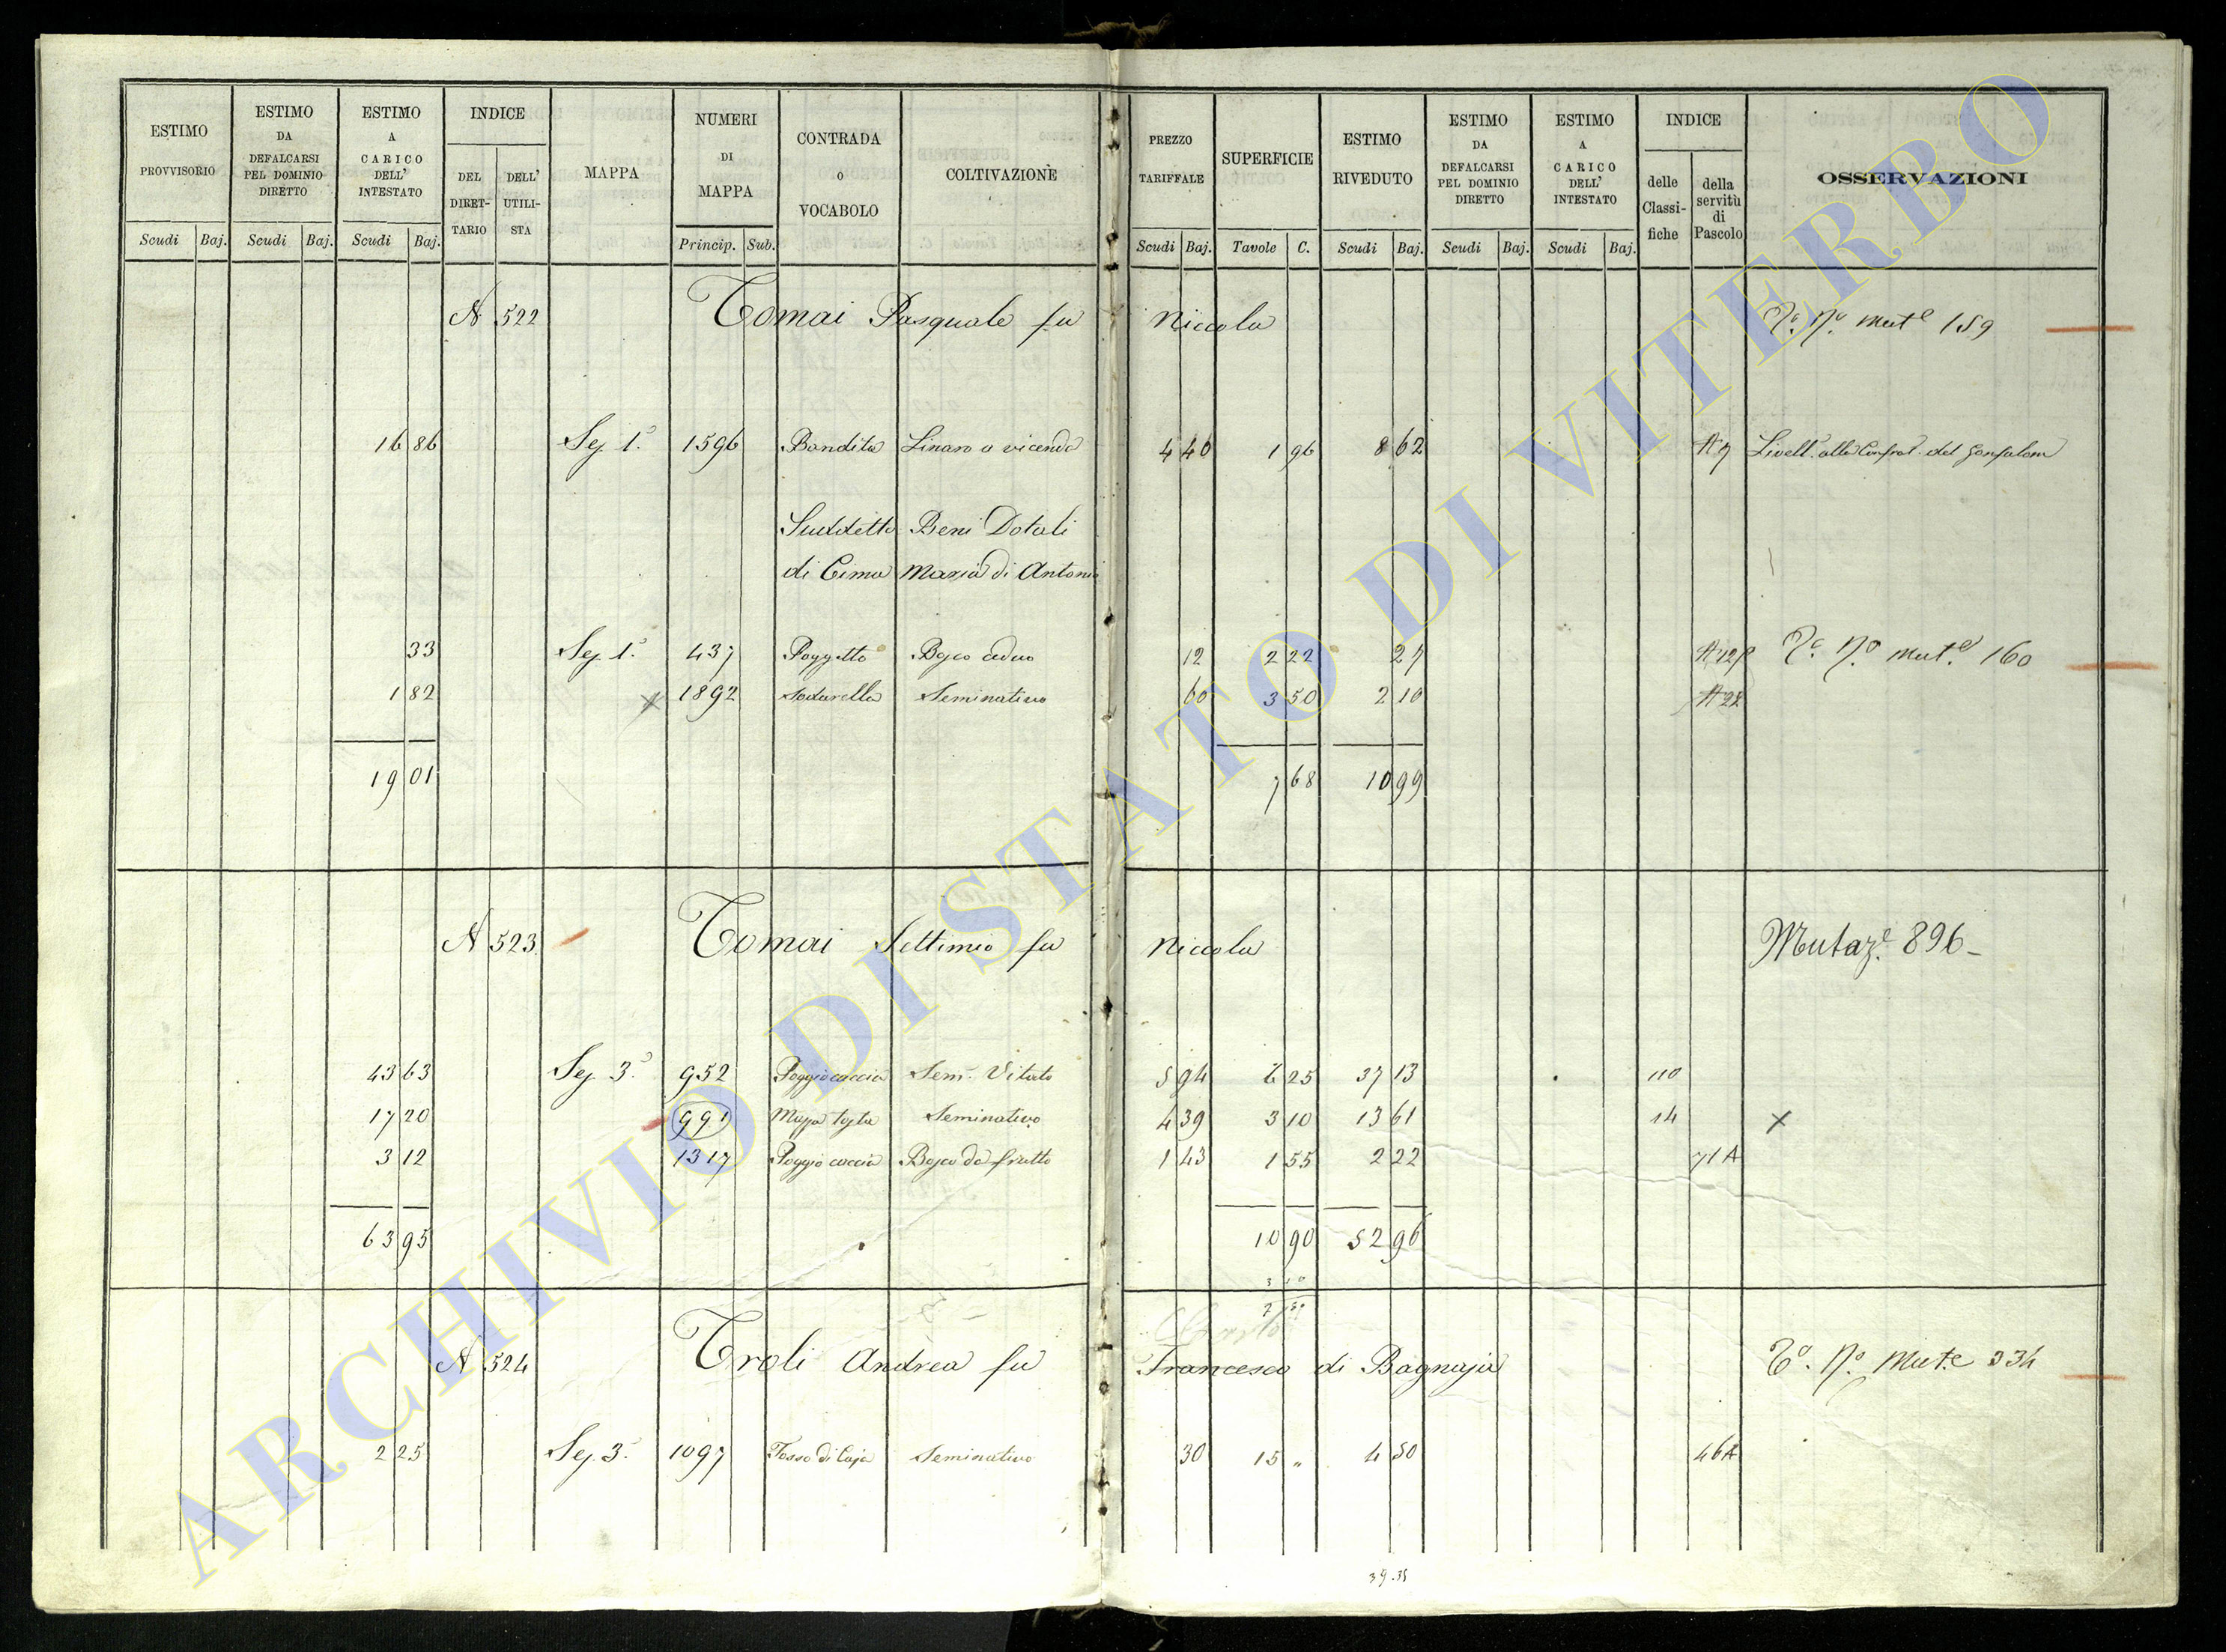 ESTIMO PROVVISORIO Scudi Baj.
ESTIMO DA DEFALCARSI PEL DOMINIO DIRETTO Scudi Baj.
ESTIMO A CARICO DELL' INTESTATO Scudi Baj.
INDICE DEL DIRET-TARIO DELL' UTILI-STA
MAPPA
NUMERI DI MAPPA Princip. Sub.
CONTRADA O VOCABOLO
COLTIVAZIONE
PREZZO TARIFFALE Scudi Baj.
SUPERFICIE Tavole C.
ESTIMO RIVEDUTO Scudi Baj.
ESTIMO DA DEFALCARSI PEL DOMINIO DIRETTO Scudi Baj.
ESTIMO A CARICO DELL' INTESTATO Scudi Baj.
INDICE delle Classi-fiche della servitù di Pascolo
OSSERVAZIONI
N 522 Tomai Pasquale fu Niccola Tº. Nº. mutº 159
16 86 Sez 1ª 1596 Bandita Linaro a vicenda 4 40 1 96 8 62 A 9 Livell. alla Confrat. del Gonfalone
Suddetto Beni Dotali
di Cima Maria di Antonio
33 Sez 1ª 437 Poggetto Bosco ceduo 12 2 22 27 Tº. Nº. mutº 160
1 82 x 1892 Sodarella Seminativo 60 3 50 2 10 A 28
19 01 7 68 10 99
N 523 Tomai Settimio fu Niccola Mutazᵉ 896 -
43 63 Sez. 3ª 952 Poggio caccia Sem. Vitato 5 94 6 25 37 13 110
17 20 991 Seminativo 4 39 3 10 13 61 14 x
3 12 1317 Poggio caccia Bosco da frutto 1 43 1 55 2 22 71 A
63 95 10 90 52 96
3 10
7 80
N 524 Troli Andrea fu Francesco di Bagnaja Tº. Nº. Mutᵉ 334
2 25 Sez. 3ª 1097 Fosso di Seminativo 30 15 „ 4 50 46 A
39.35
ARCHIVIO DI STATO DI VITERBO